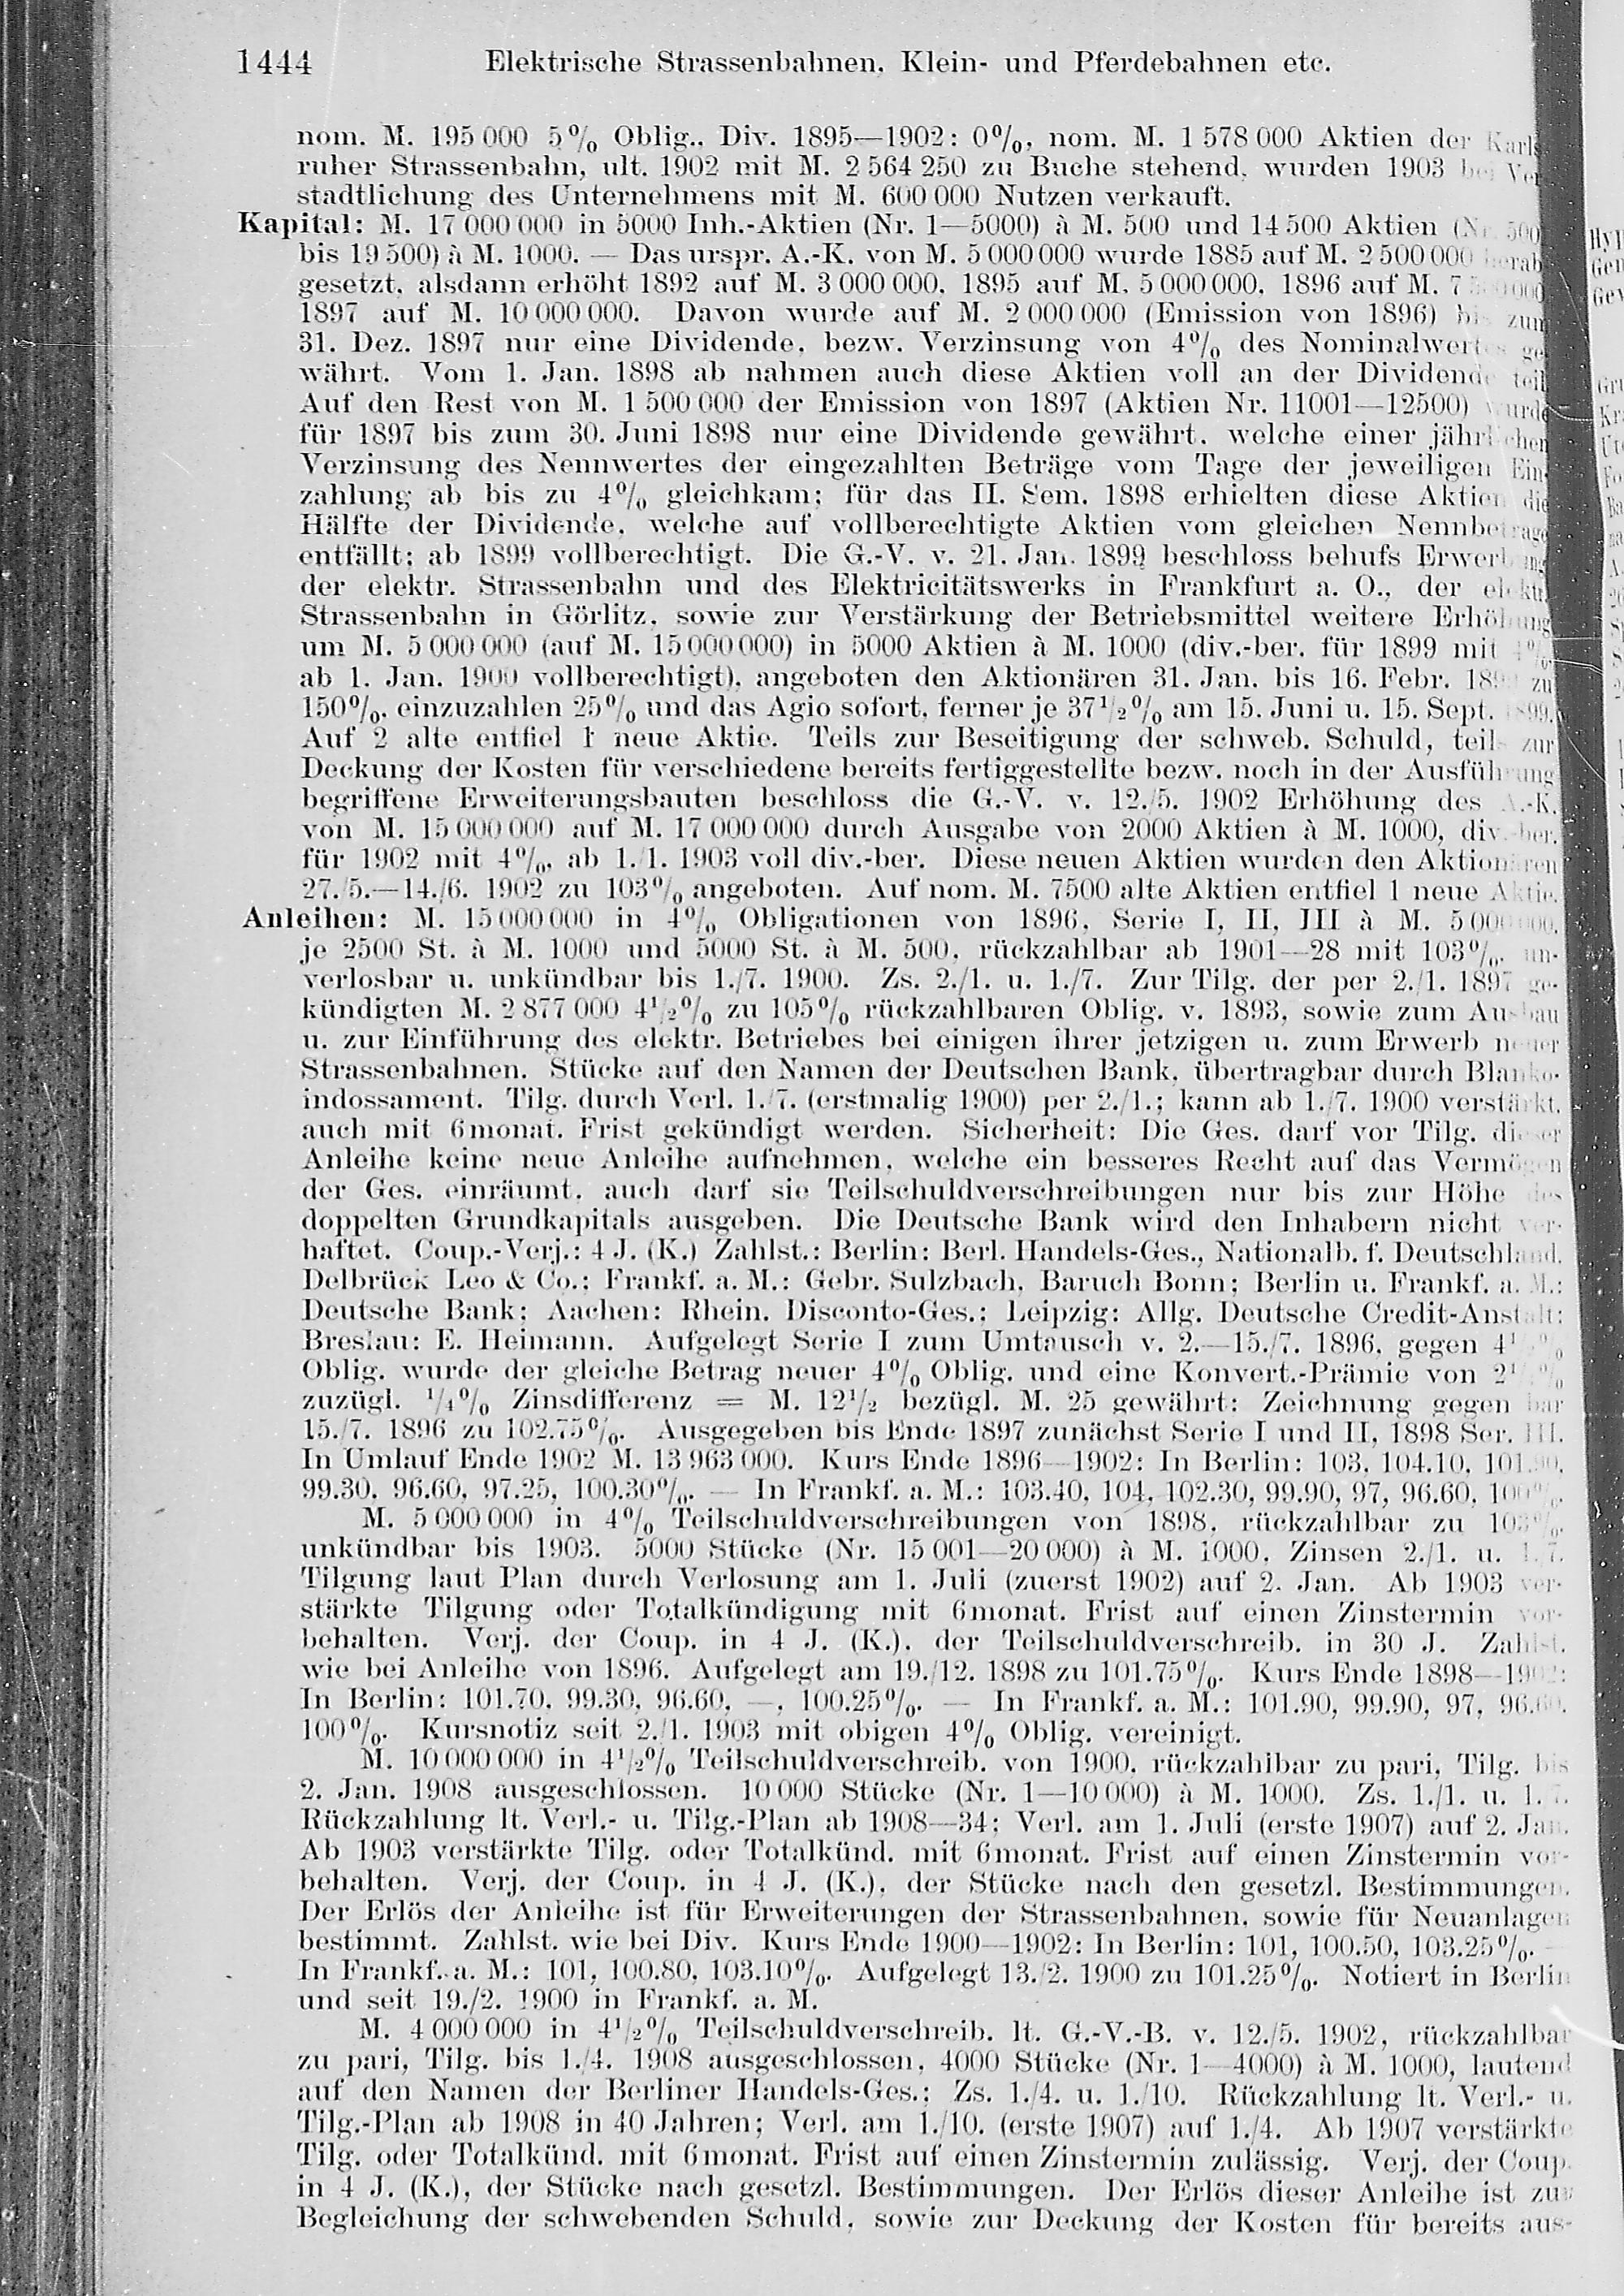 1444 Elektrische Strassenbahnen, Klein- und Pferdebahnen etc.
nom. M. 195 000 5% Oblig., Div. 1895—1902: 0%, nom. M. 1 578 000 Aktien der Karls
ruher Strassenbahn, ult. 1902 mit M. 2 564 250 zu Buche stehend, wurden 1903 bei Ver
stadtlichung des Unternehmens mit M. 600 000 Nutzen verkauft.
Kapital: M. 17 000 000 in 5000 Inh.-Aktien (Nr. 1—5000) à M. 500 und 14 500 Aktien (Nr. 500
bis 19 500) à M. 1000. — Das urspr. A.-K. von M. 5 000 000 wurde 1885 auf M. 2 500 000 herab
gesetzt, alsdann erhöht 1892 auf M. 3 000 000, 1895 auf M. 5 000 000, 1896 auf M. 7 500 000
1897 auf M. 10 000 000. Davon wurde auf M. 2 000 000 (Emission von 1896) bis zum
31. Dez. 1897 nur eine Dividende, bezw. Verzinsung von 4% des Nominalwertes ge
währt. Vom 1. Jan. 1898 ab nahmen auch diese Aktien voll an der Dividende teil
Auf den Rest von M. 1 500 000 der Emission von 1897 (Aktien Nr. 11001—12500) wurde
für 1897 bis zum 30. Juni 1898 nur eine Dividende gewährt, welche einer jährlichen
Verzinsung des Nennwertes der eingezahlten Beträge vom Tage der jeweiligen Ein
zahlung ab bis zu 4% gleichkam; für das II. Sem. 1898 erhielten diese Aktien die
Hälfte der Dividende, welche auf vollberechtigte Aktien vom gleichen Nennbetrage
entfällt; ab 1899 vollberechtigt. Die G.-V. v. 21. Jan. 1899 beschloss behufs Erwerbung
der elektr. Strassenbahn und des Elektricitätswerks in Frankfurt a. O., der elektr.
Strassenbahn in Görlitz, sowie zur Verstärkung der Betriebsmittel weitere Erhöhung
um M. 5 000 000 (auf M. 15 000 000) in 5000 Aktien à M. 1000 (div.-ber. für 1899 mit 4%,
ab 1. Jan. 1900 vollberechtigt), angeboten den Aktionären 31. Jan. bis 16. Febr. 1899 zu
150%, einzuzahlen 25% und das Agio sofort, ferner je 37 1/2% am 15. Juni u. 15. Sept. 1899.
Auf 2 alte entfiel 1 neue Aktie. Teils zur Beseitigung der schweb. Schuld, teils zur
Deckung der Kosten für verschiedene bereits fertiggestellte bezw. noch in der Ausführung
begriffene Erweiterungsbauten beschloss die G.-V. v. 12./5. 1902 Erhöhung des A.-K.
von M. 15 000 000 auf M. 17 000 000 durch Ausgabe von 2000 Aktien à M. 1000, div.-ber.
für 1902 mit 4%, ab 1./1. 1903 voll div.-ber. Diese neuen Aktien wurden den Aktionären
27./5.—14./6. 1902 zu 103% angeboten. Auf nom. M. 7500 alte Aktien entfiel 1 neue Aktie.
Anleihen: M. 15 000 000 in 4% Obligationen von 1896, Serie I, II, III à M. 5 000 000,
je 2500 St. à M. 1000 und 5000 St. à M. 500, rückzahlbar ab 1901—28 mit 103%, un-
verlosbar u. unkündbar bis 1./7. 1900. Zs. 2./1. u. 1./7. Zur Tilg. der per 2./1. 1897 ge-
kündigten M. 2 877 000 4 1/2% zu 105% rückzahlbaren Oblig. v. 1893, sowie zum Ausbau
u. zur Einführung des elektr. Betriebes bei einigen ihrer jetzigen u. zum Erwerb neuer
Strassenbahnen. Stücke auf den Namen der Deutschen Bank, übertragbar durch Blanko-
indossament. Tilg. durch Verl. 1./7. (erstmalig 1900) per 2./1.; kann ab 1./7. 1900 verstärkt,
auch mit 6monat. Frist gekündigt werden. Sicherheit: Die Ges. darf vor Tilg. dieser
Anleihe keine neue Anleihe aufnehmen, welche ein besseres Recht auf das Vermögen
der Ges. einräumt, auch darf sie Teilschuldverschreibungen nur bis zur Höhe des
doppelten Grundkapitals ausgeben. Die Deutsche Bank wird den Inhabern nicht ver-
haftet. Coup.-Verj.: 4 J. (K.) Zahlst.: Berlin: Berl. Handels-Ges., Nationalb. f. Deutschland,
Delbrück Leo & Co.; Frankf. a. M.: Gebr. Sulzbach, Baruch Bonn; Berlin u. Frankf. a. M.:
Deutsche Bank; Aachen: Rhein. Disconto-Ges.; Leipzig: Allg. Deutsche Credit-Anstalt;
Breslau: E. Heimann. Aufgelegt Serie I zum Umtausch v. 2.—15./7. 1896, gegen 4 1/2%
Oblig. wurde der gleiche Betrag neuer 4% Oblig. und eine Konvert.-Prämie von 2 1/4%
zuzügl. 1/4% Zinsdifferenz = M. 12 1/2 bezügl. M. 25 gewährt: Zeichnung gegen bar
15./7. 1896 zu 102.75%. Ausgegeben bis Ende 1897 zunächst Serie I und II, 1898 Ser. III.
In Umlauf Ende 1902 M. 13 963 000. Kurs Ende 1896—1902: In Berlin: 103, 104.10, 101.90,
99.30, 96.60, 97.25, 100.30%. — In Frankf. a. M.: 103.40, 104, 102.30, 99.90, 97, 96.60, 100%.
M. 5 000 000 in 4% Teilschuldverschreibungen von 1898, rückzahlbar zu 103%,
unkündbar bis 1903. 5000 Stücke (Nr. 15 001—20 000) à M. 1000, Zinsen 2./1. u. 1./7.
Tilgung laut Plan durch Verlosung am 1. Juli (zuerst 1902) auf 2. Jan. Ab 1903 ver-
stärkte Tilgung oder Totalkündigung mit 6monat. Frist auf einen Zinstermin vor-
behalten. Verj. der Coup. in 4 J. (K.), der Teilschuldverschreib. in 30 J. Zahlst.
wie bei Anleihe von 1896. Aufgelegt am 19./12. 1898 zu 101.75%. Kurs Ende 1898—1902:
In Berlin: 101.70, 99.30, 96.60, —, 100.25%. — In Frankf. a. M.: 101.90, 99.90, 97, 96.60,
100%. Kursnotiz seit 2./1. 1903 mit obigen 4% Oblig. vereinigt.
M. 10 000 000 in 4 1/2% Teilschuldverschreib. von 1900, rückzahlbar zu pari, Tilg. bis
2. Jan. 1908 ausgeschlossen. 10 000 Stücke (Nr. 1—10 000) à M. 1000. Zs. 1./1. u. 1./7.
Rückzahlung lt. Verl.- u. Tilg.-Plan ab 1908—34; Verl. am 1. Juli (erste 1907) auf 2. Jan.
Ab 1903 verstärkte Tilg. oder Totalkünd. mit 6monat. Frist auf einen Zinstermin vor-
behalten. Verj. der Coup. in 4 J. (K.), der Stücke nach den gesetzl. Bestimmungen.
Der Erlös der Anleihe ist für Erweiterungen der Strassenbahnen, sowie für Neuanlagen
bestimmt. Zahlst. wie bei Div. Kurs Ende 1900—1902: In Berlin: 101, 100.50, 103.25%. —
In Frankf. a. M.: 101, 100.80, 103.10%. Aufgelegt 13./2. 1900 zu 101.25%. Notiert in Berlin
und seit 19./2. 1900 in Frankf. a. M.
M. 4 000 000 in 4 1/2% Teilschuldverschreib. lt. G.-V.-B. v. 12./5. 1902, rückzahlbar
zu pari, Tilg. bis 1./4. 1908 ausgeschlossen, 4000 Stücke (Nr. 1—4000) à M. 1000, lautend
auf den Namen der Berliner Handels-Ges.; Zs. 1./4. u. 1./10. Rückzahlung lt. Verl.- u.
Tilg.-Plan ab 1908 in 40 Jahren; Verl. am 1./10. (erste 1907) auf 1./4. Ab 1907 verstärkte
Tilg. oder Totalkünd. mit 6monat. Frist auf einen Zinstermin zulässig. Verj. der Coup.
in 4 J. (K.), der Stücke nach gesetzl. Bestimmungen. Der Erlös dieser Anleihe ist zur
Begleichung der schwebenden Schuld, sowie zur Deckung der Kosten für bereits aus-